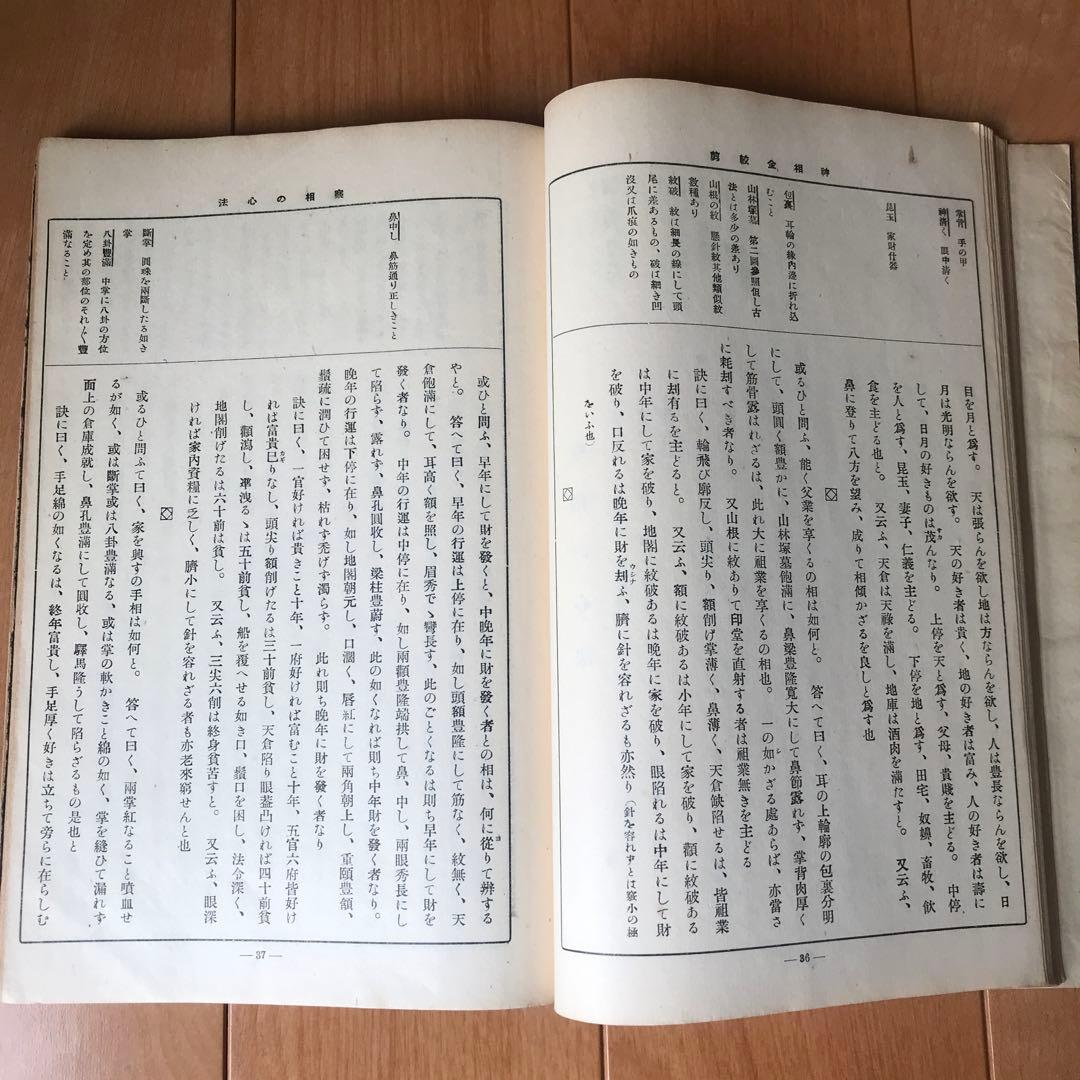 神相金較剪
掌背　手の甲
神濤く　眼中濤く
昆玉　家財什器
包裹　耳輪の緣內邊に折れ込
むこと
山林塚墓　第二圖參照但し古
法とは多少の差あり
山根の紋　懸針紋其他類似紋
數種あり
紋破　紋は細長の線にして頭
尾に差あるもの、破は細き凹
沒又は爪痕の如きもの
目を月と爲す。　天は張らんを欲し地は方ならんを欲し、人は豊長ならんを欲し、日
月は光明ならんを欲す。　天の好き者は貴く、地の好き者は富み、人の好き者は壽に
して、日月の好きものは茂んなり。　上停を天と爲す、父母、貴賤を主どる。　中停
を人と爲す、昆玉、妻子、仁義を主どる。　下停を地と爲す、田宅、奴婢、畜牧、飮
食を主どる也と。　又云ふ、天倉は天祿を滿し、地庫は酒肉を滿たすと。　又云ふ、
鼻に登りて八方を望み、成りて相傾かざるを良しと爲す也
或るひと問ふ、能く父業を享くるの相は如何と。　答へて曰く、耳の上輪廓の包裹分明
にして、頭圓く額豊かに、山林塚墓飽滿に、鼻梁豊隆寬大にして鼻節露れず、掌背肉厚く
して筋骨露はれざるは、此れ大に祖業を享くるの相也。　一の如かざる處あらば、亦當さ
に耗刦すべき者なり。　又山根に紋ありて印堂を直射する者は祖業無きを主どる
訣に曰く、輪飛び廓反し、頭尖り、額削げ掌薄く、鼻薄く、天倉缺陷せるは、皆祖業
に刦有るを主どると。　又云ふ、額に紋破あるは小年にして家を破り、顴に紋破ある
は中年にして家を破り、地閣に紋破あるは晩年に家を破り、眼陷れるは中年にして財
を破り、口反れるは晩年に財を刦ふ、臍に針を容れざるも亦然り（針を容れずとは竅小の極
をいふ也）
—36—
察相の心法
鼻中し　鼻筋通り正しきこと
斷掌　圓珠を兩斷したる如き
掌
八卦豐滿　中掌に八卦の方位
を定め其の部位のそれ〲豐
滿なること
或ひと問ふ、早年にして財を發くと、中晩年に財を發く者との相は、何に從りて辨する
やと。　答へて曰く、早年の行運は上停に在り、如し頭額豊隆にして筋なく、紋無く、天
倉飽滿にして、耳高く額を照し、眉秀でゝ彎長す、此のごとくなるは則ち早年にして財を
發く者なり。　中年の行運は中停に在り、如し兩顴豊隆端拱して鼻、中し、兩眼秀長にし
て陷らず、露れず、鼻孔圓收し、梁柱豊蔚す、此の如くなれば則ち中年財を發く者なり。
晩年の行運は下停に在り、如し地閣朝元し、口濶く、唇紅にして兩角朝上し、重頤豊頷、
鬚疏に潤ひて困せず、枯れず禿げず濁らず。　此れ則ち晩年に財を發く者なり
訣に曰く、一官好ければ貴きこと十年、一府好ければ富むこと十年、五官六府皆好け
れば富貴已りなし、頭尖り額削げたるは三十前貧し、天倉陷り眼葢凸ければ四十前貧
し、顴瀉し、凖洩るゝは五十前貧し、船を覆へせる如き口、鬚口を困し、法令深く、
地閣削げたるは六十前は貧し。　又云ふ、三尖六削は終身貧苦すと。　又云ふ、眼深
ければ家內資糧に乏しく、臍小にして針を容れざる者も亦老來窮せんと也
或るひと問ふて曰く、家を興すの手相は如何と。　答へて曰く、兩掌紅なること噴血せ
るが如く、或は斷掌或は八卦豊滿なる、或は掌の軟かきこと綿の如く、掌を縫ひて漏れず
面上の倉庫成就し、鼻孔豊滿にして圓收し、驛馬隆うして陷らざるもの是也と
訣に曰く、手足綿の如くなるは、終年富貴し、手足厚く好きは立ちて旁らに在らしむ
—37—